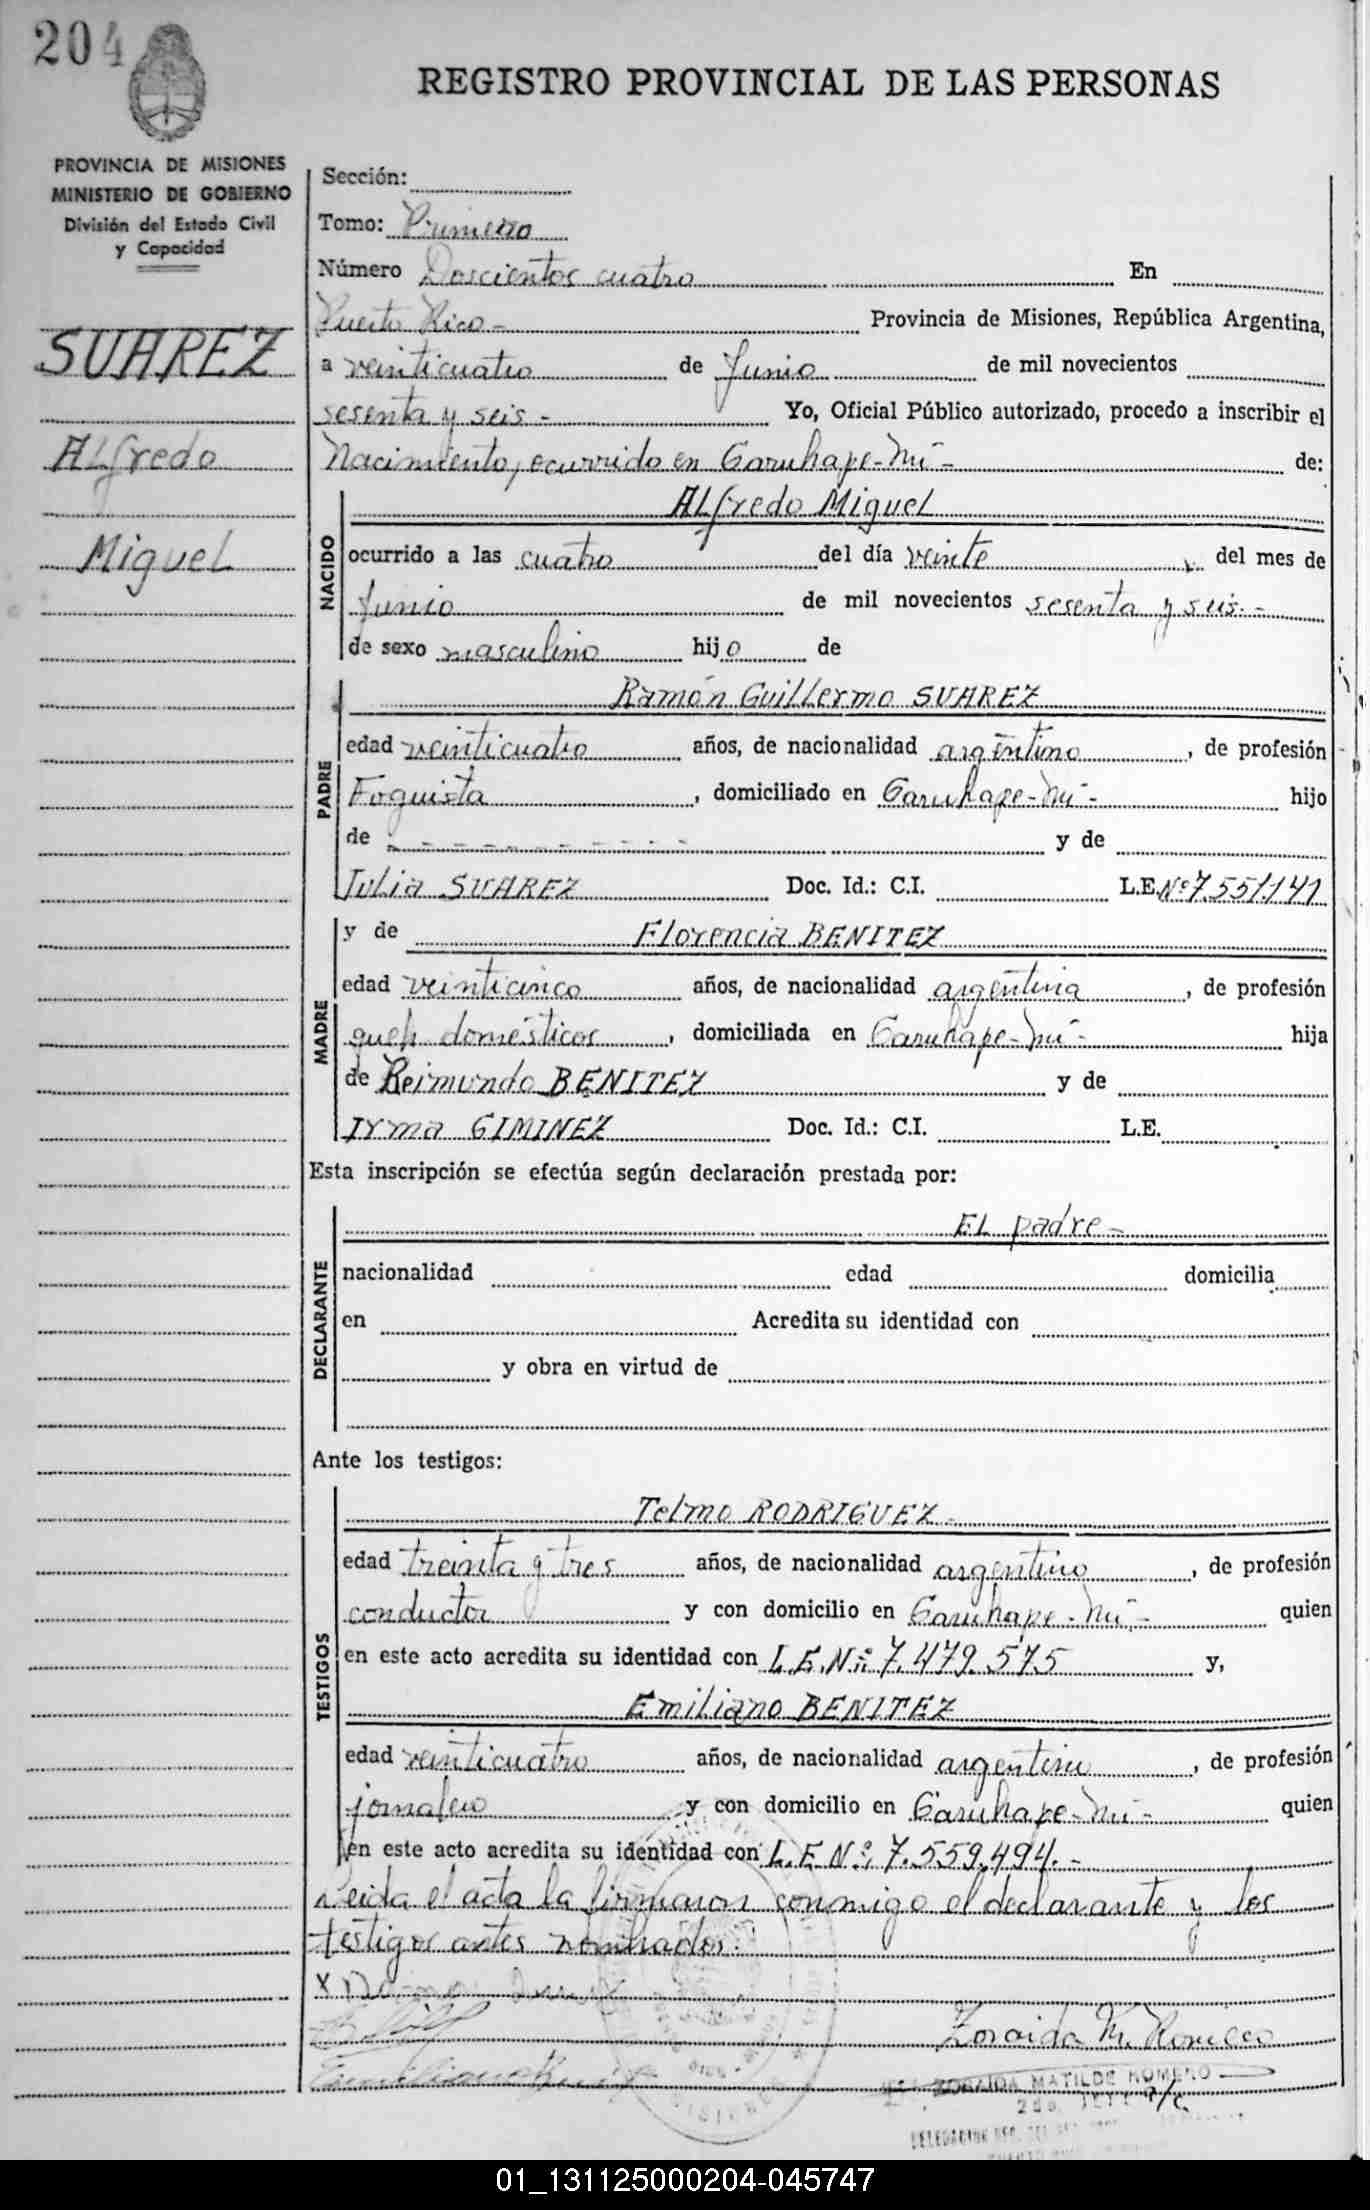 204
REGISTRO PROVINCIAL DE LAS PERSONAS
PROVINCIA DE MISIONES
MINISTERIO DE GOBIERNO
División del Estado Civil
y Capacidad
SUAREZ
Alfredo
Miguel
Sección:
Tomo: Primero
Número Doscientos cuatro En
Puerto Rico - Provincia de Misiones, República Argentina,
a veinticuatro de Junio de mil novecientos
sesenta y seis - Yo, Oficial Público autorizado, procedo a inscribir el
Nacimiento, ocurrido en Garuhape-mí - de:
NACIDO
Alfredo Miguel
ocurrido a las cuatro del día veinte del mes de
Junio de mil novecientos sesenta y seis.-
de sexo masculino hijo de
PADRE
Ramón Guillermo SUAREZ
edad veinticuatro años, de nacionalidad argentino, de profesión
Foguista, domiciliado en Garuhape-mí - hijo
de - - - - - - - - - - - y de
Julia SUAREZ Doc. Id.: C.I. L.E. Nº 7.551.141
MADRE
y de Florencia BENITEZ
edad veinticinco años, de nacionalidad argentina, de profesión
queh. domésticos, domiciliada en Garuhape-mí - hija
de Reimundo BENITEZ y de
Irma GIMINEZ Doc. Id.: C.I. L.E.
Esta inscripción se efectúa según declaración prestada por:
DECLARANTE
El padre -
nacionalidad edad domicilia
en Acredita su identidad con
y obra en virtud de
Ante los testigos:
TESTIGOS
Telmo RODRIGUEZ -
edad treinta y tres años, de nacionalidad argentino, de profesión
conductor y con domicilio en Garuhape-mí - quien
en este acto acredita su identidad con L.E. Nº 7.479.575 y,
Emiliano BENITEZ
edad veinticuatro años, de nacionalidad argentino, de profesión
jornalero y con domicilio en Garuhape-mí - quien
en este acto acredita su identidad con L.E. Nº 7.559.494. -
Leida el acta la firmaron conmigo el declarante y los
testigos antes nombrados.
X
Zoraida M. Romero
ZORAIDA MATILDE ROMERO
2do. JEFE a/c
01_131125000204-045747